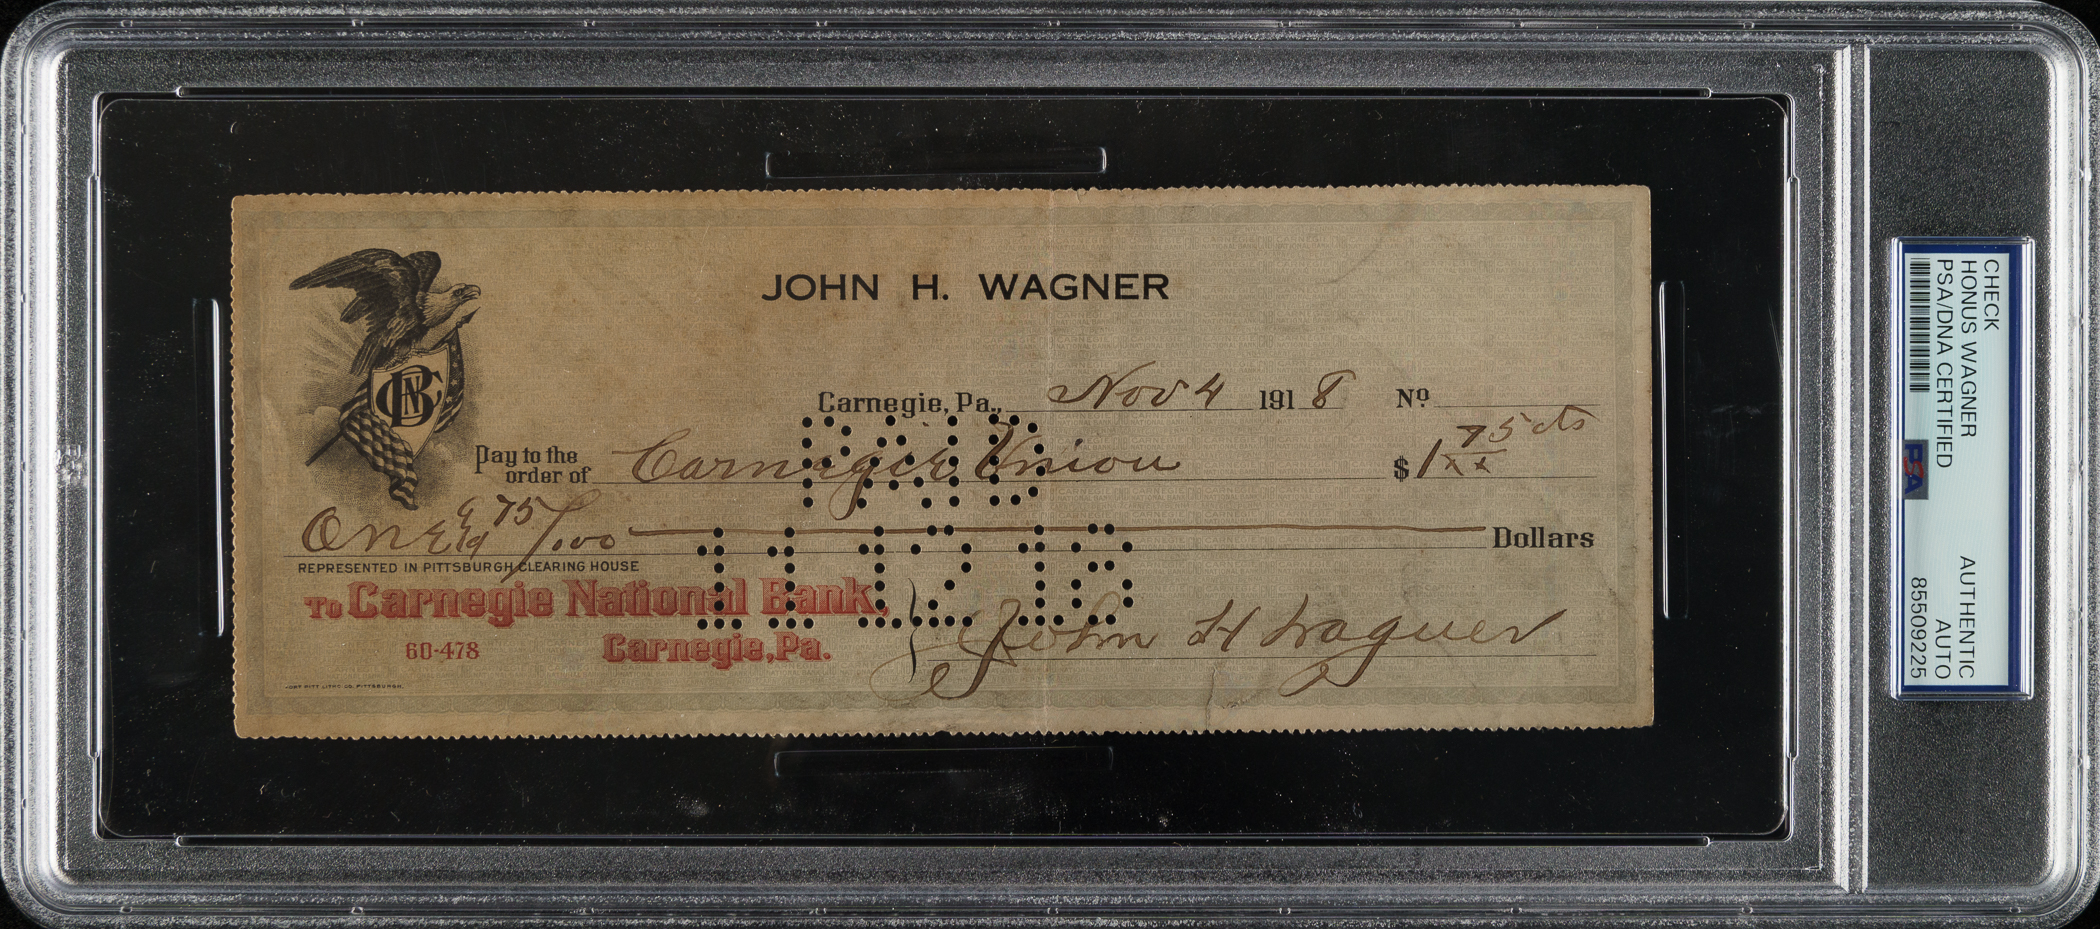 JOHN H. WAGNER
CBN
Carnegie, Pa., Nov 4 1918 No
Pay to the order of Carnegie Union $1 75 cts
xx
One & 75/100 Dollars
PAID
11 12 18
REPRESENTED IN PITTSBURGH CLEARING HOUSE
To Carnegie National Bank,
60-478 Carnegie, Pa.
John H Wagner
FORT PITT LITHO. CO. PITTSBURGH.
CHECK
HONUS WAGNER
PSA/DNA CERTIFIED
PSA
AUTHENTIC
AUTO
85509225